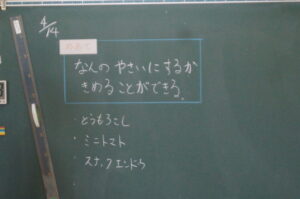 4/14
めあて
なんの やさいに するか
きめることができる。
・とうもろこし
・ミニトマト
・スナックエンドウ
・